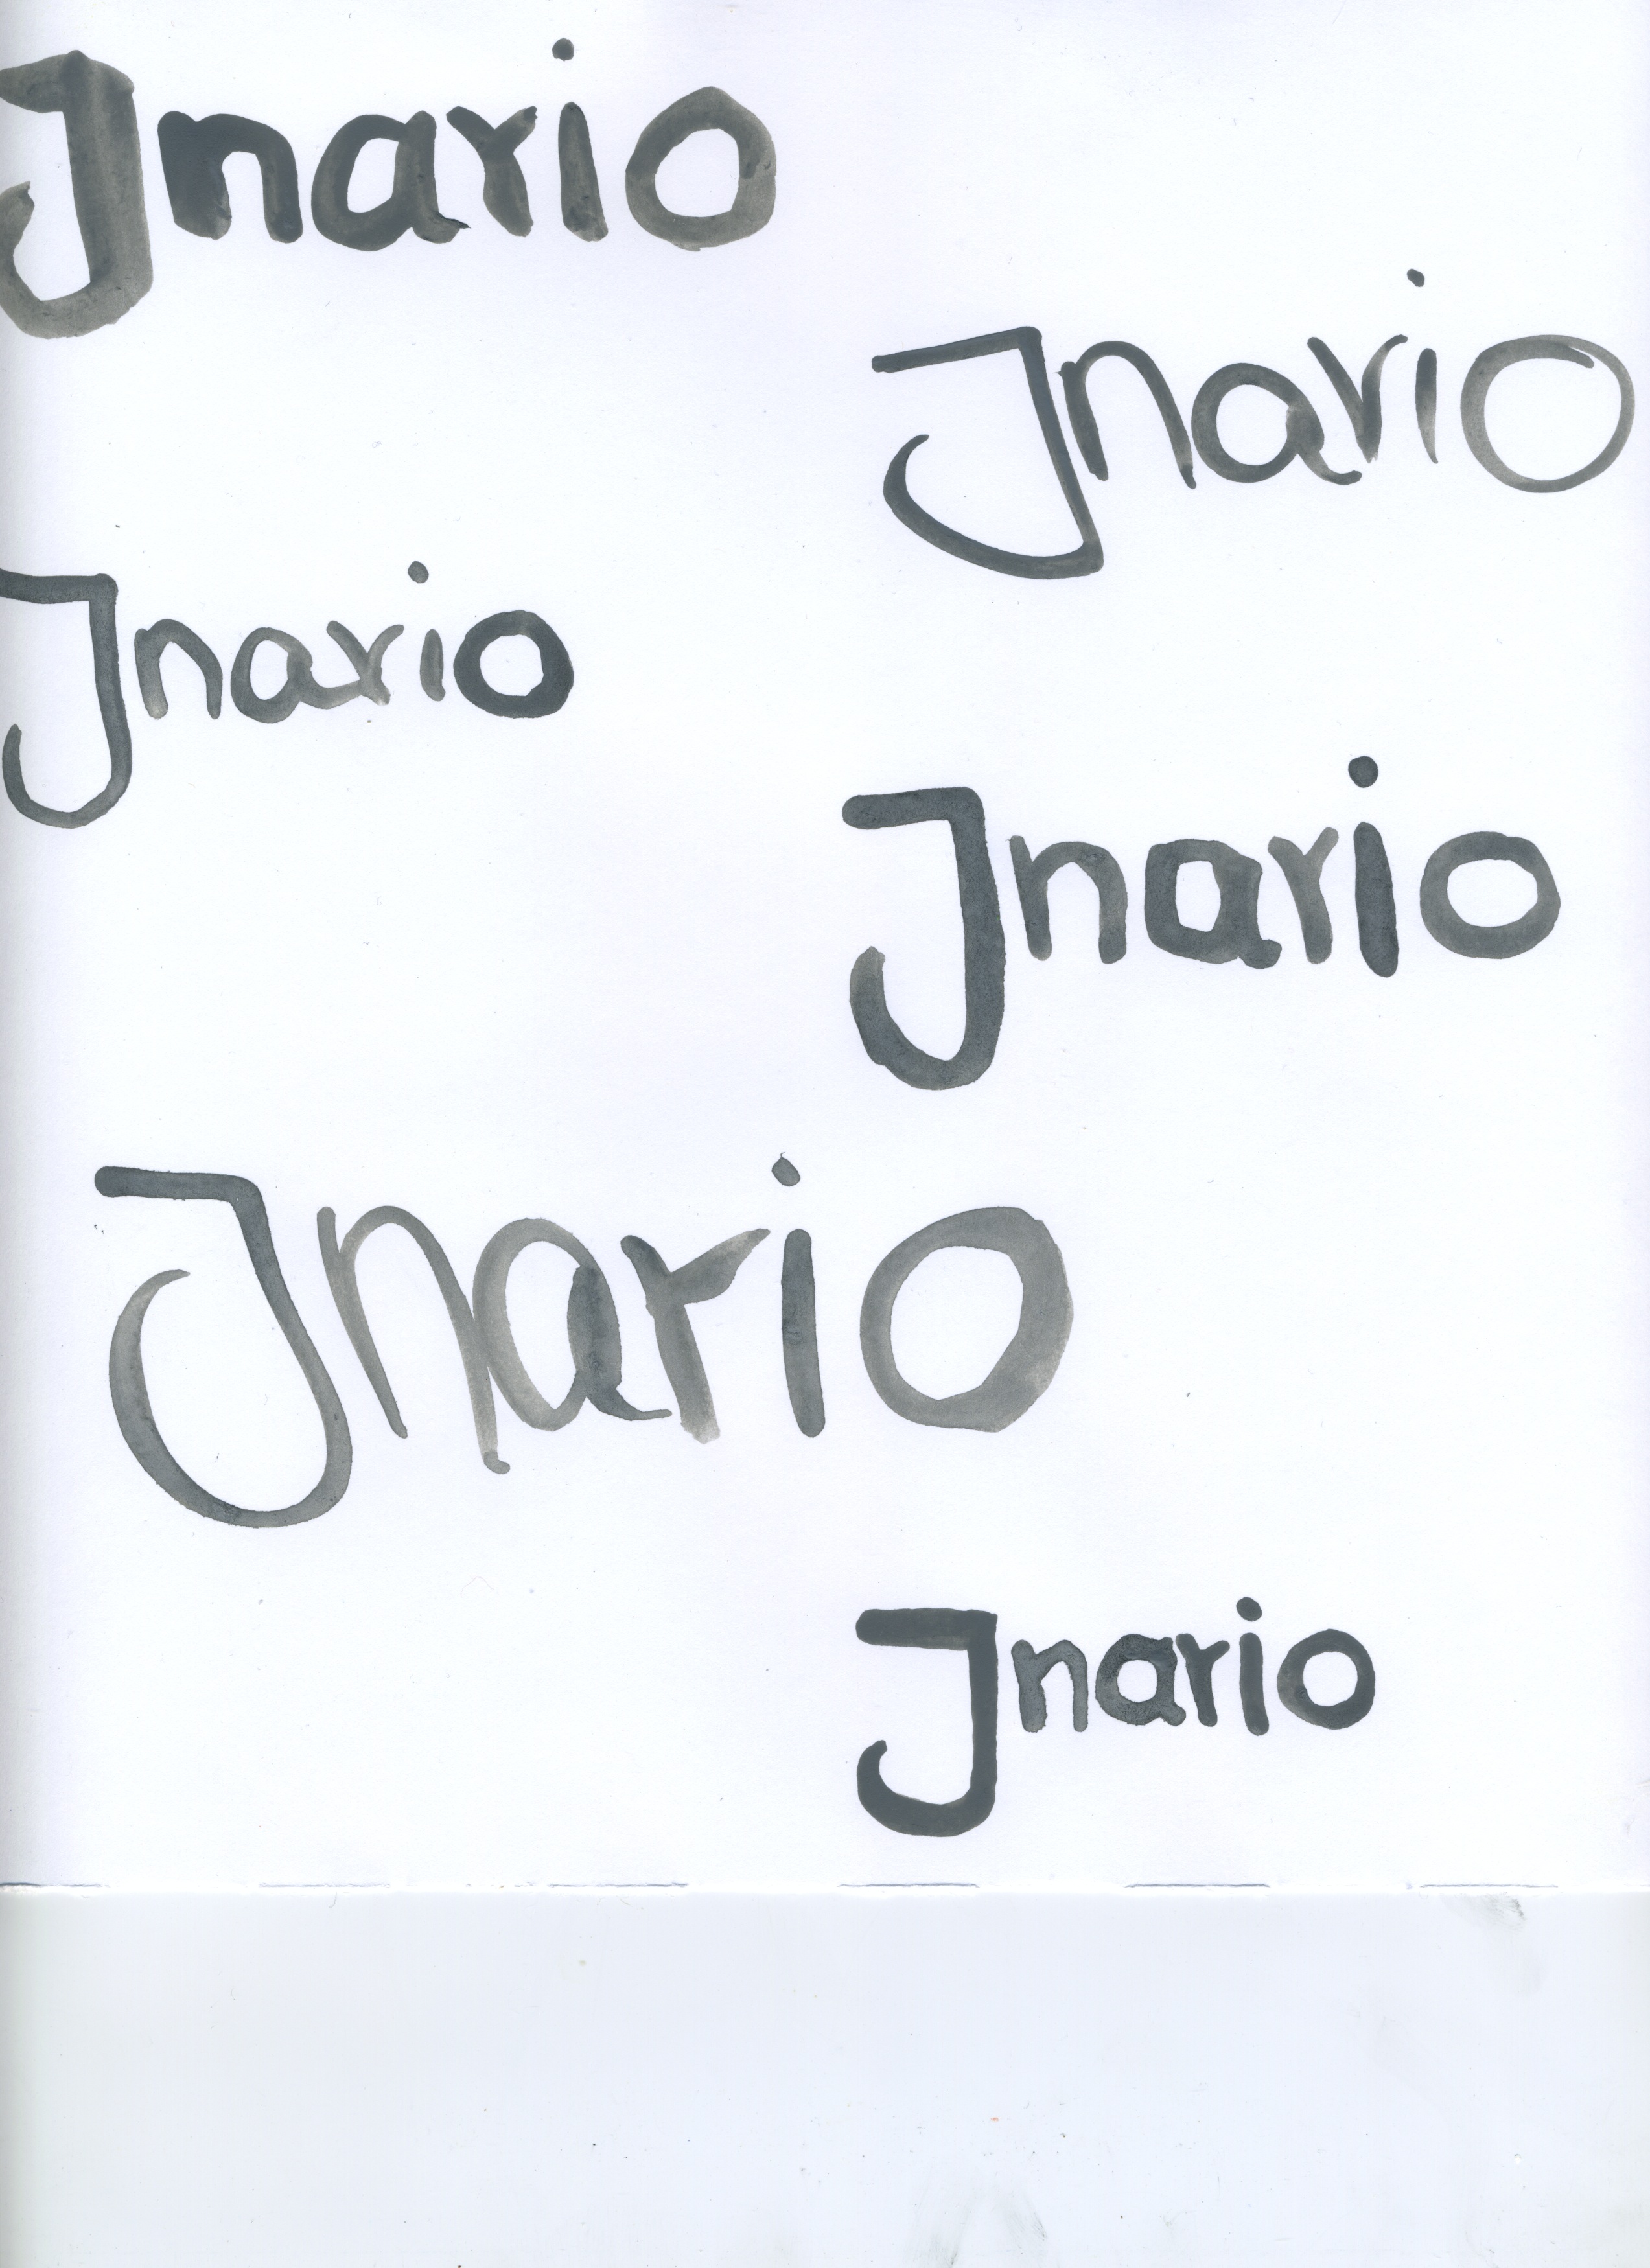 Jnario
Jnario
Jnario
Jnario
Jnario
Jnario